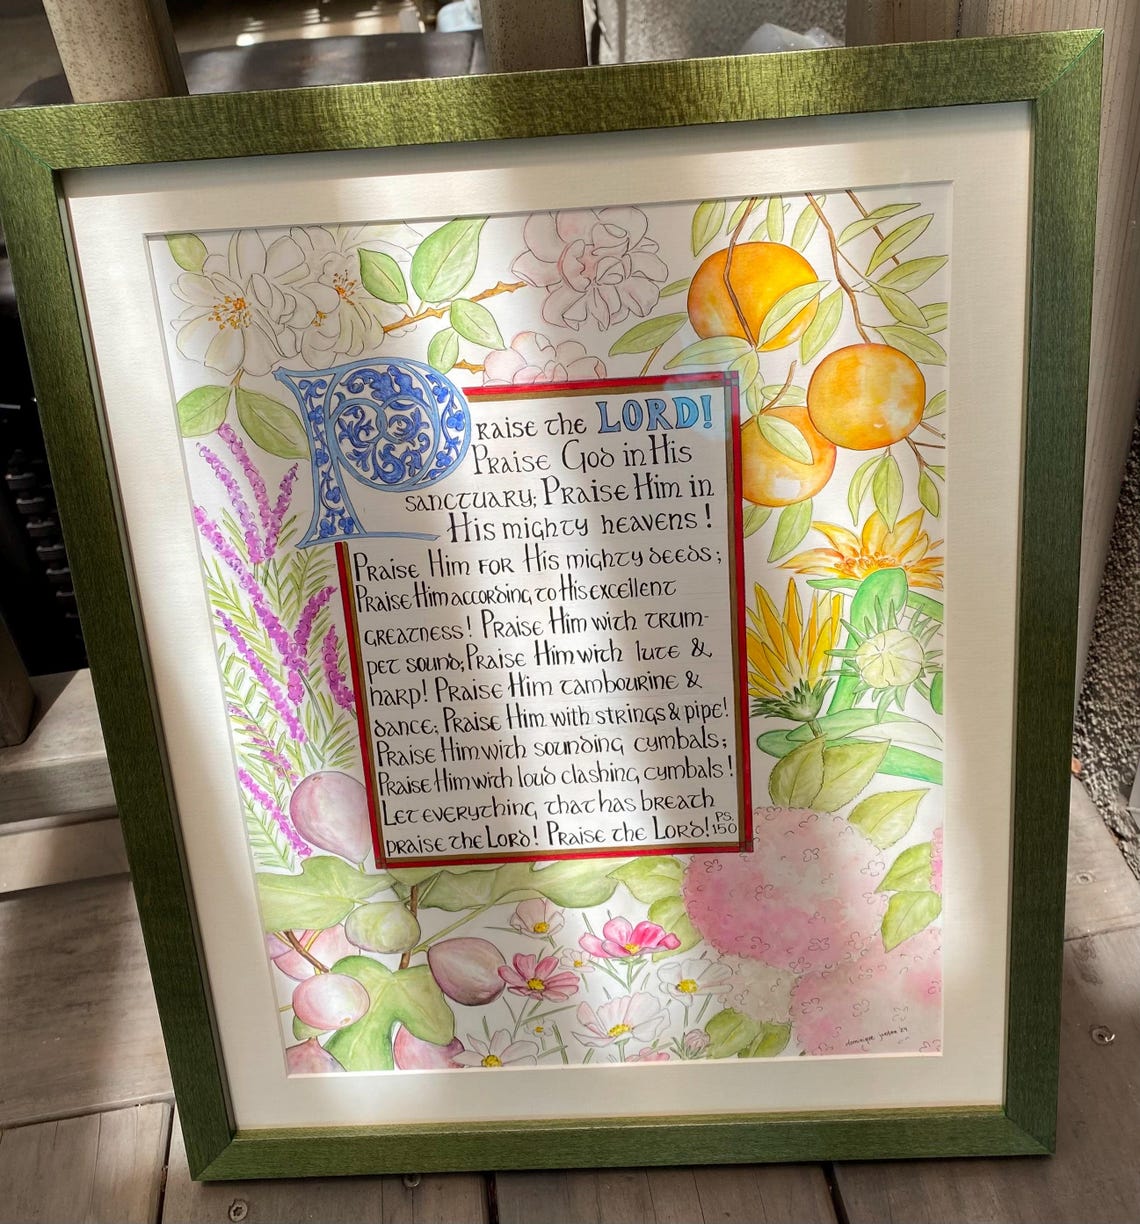 Praise the LORD!
Praise God in His
sanctuary; Praise Him in
His mighty heavens!
Praise Him for His mighty deeds;
Praise Him according to His excellent
greatness! Praise Him with trum-
pet sound; Praise Him with lute &
harp! Praise Him tambourine &
dance; Praise Him with strings & pipe!
Praise Him with sounding cymbals;
Praise Him with loud clashing cymbals!
Let everything that has breath
praise the Lord! Praise the Lord! PS. 150
dominique